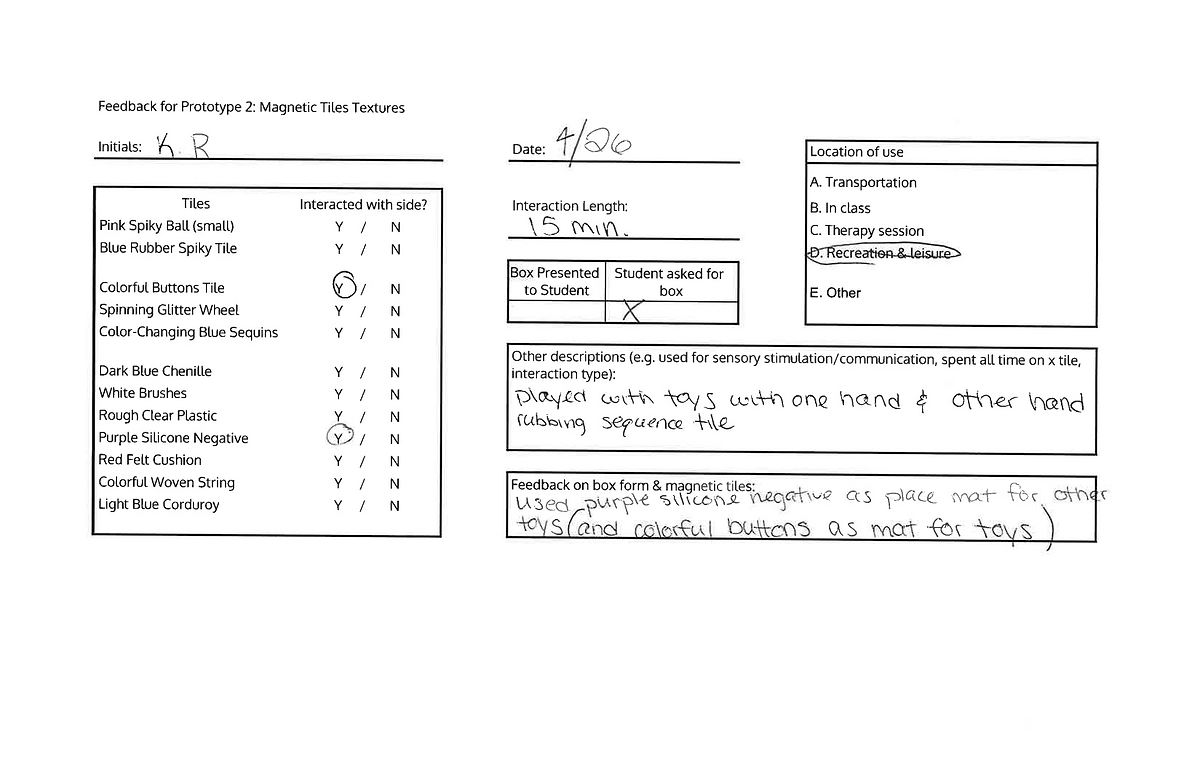 Feedback for Prototype 2: Magnetic Tiles Textures
Initials: K. R
Date: 4/26
Tiles Interacted with side?
Pink Spiky Ball (small) Y / N
Blue Rubber Spiky Tile Y / N
Colorful Buttons Tile Y / N
Spinning Glitter Wheel Y / N
Color-Changing Blue Sequins Y / N
Dark Blue Chenille Y / N
White Brushes Y / N
Rough Clear Plastic Y / N
Purple Silicone Negative Y / N
Red Felt Cushion Y / N
Colorful Woven String Y / N
Light Blue Corduroy Y / N
Interaction Length:
15 min.
Box Presented to Student
Student asked for box
X
Location of use
A. Transportation
B. In class
C. Therapy session
D. Recreation & leisure
E. Other
Other descriptions (e.g. used for sensory stimulation/communication, spent all time on x tile,
interaction type):
played with toys with one hand & other hand
rubbing sequence tile
Feedback on box form & magnetic tiles:
used purple silicone negative as place mat for other
toys (and colorful buttons as mat for toys)